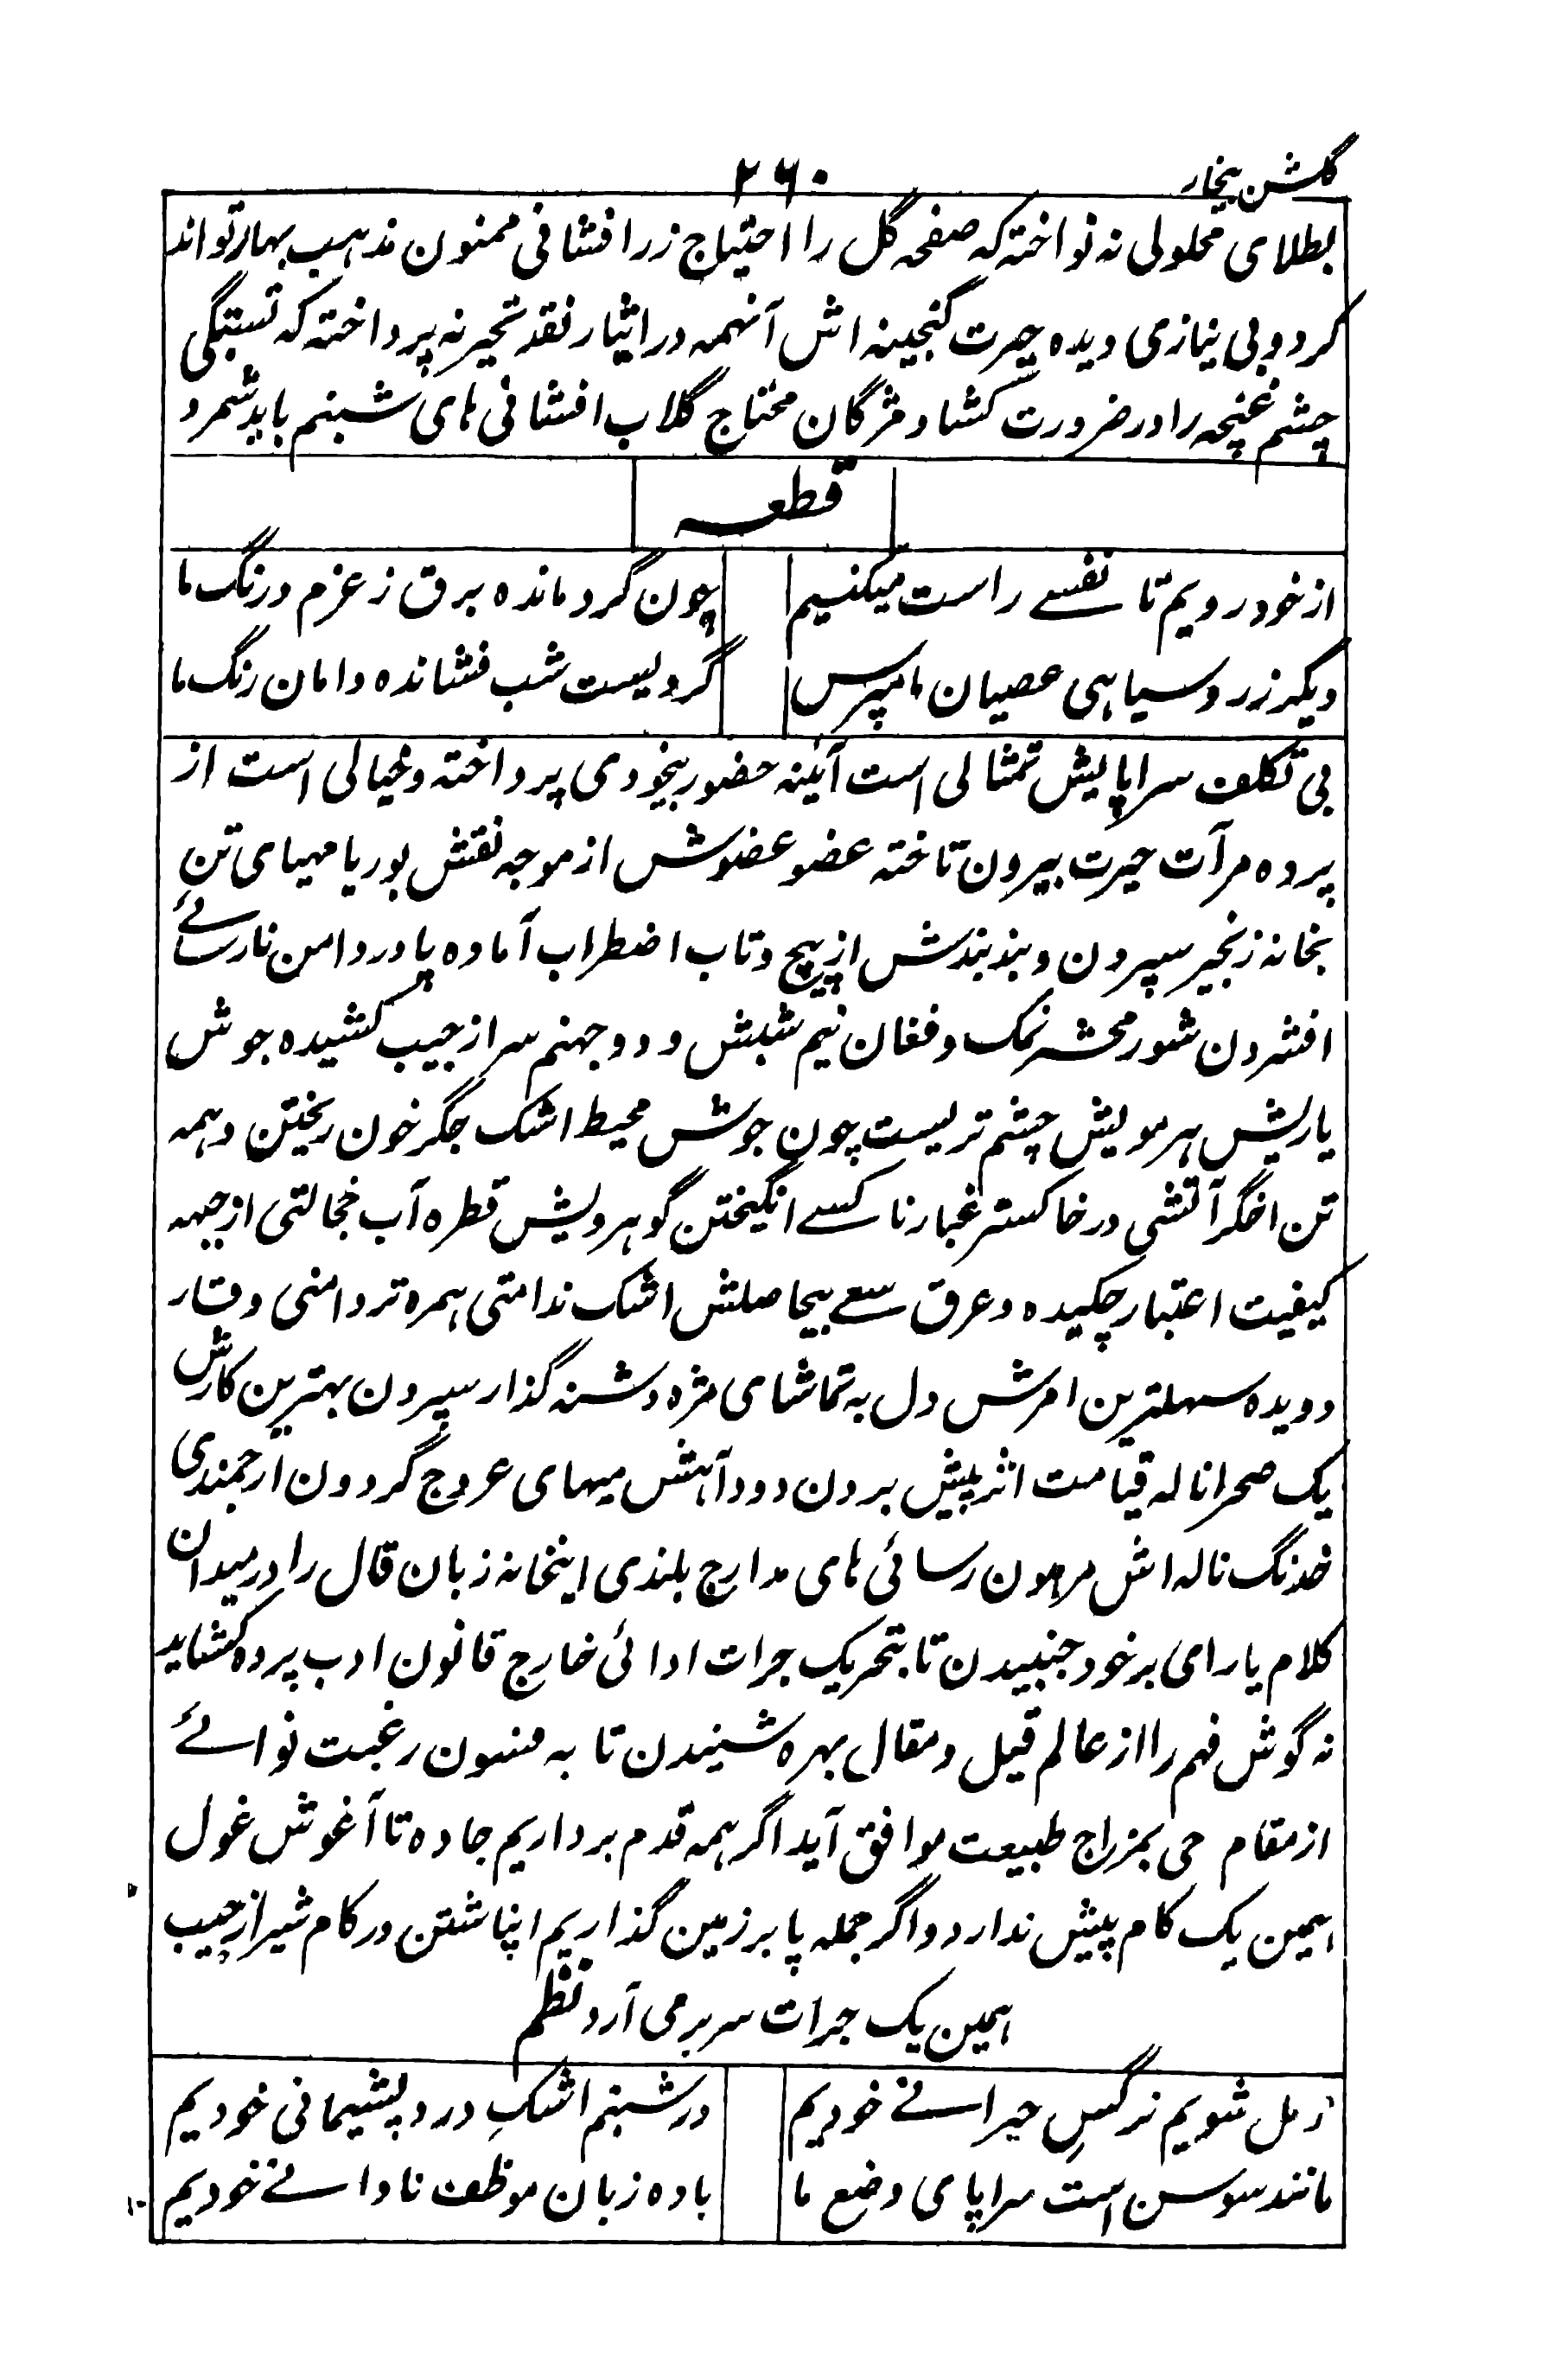 گلشن بیخار
۲۶۰
بطلای محلولی نه نواخته که صفحه گل را احتیاج زر افشانی ممنون مذهب بهار تواند
کرد و بی نیازی دیده حیرت گنجینه اش آنهمه در ایثار نقد تحیر نه پرداخته که تسبتگی
چشم غنچه را در ضرورت کشاد مژگان محتاج گلاب افشانی های شبنم باید شمرد
قطعه
از خود رویم تا نفسے راست میکنیم
چون گرد مانده برق ز عزم درنگ ما
دیگر ز رو سیاهی عصیان ما مپرس
گردیست شب فشانده دامان رنگ ما
بی تکلف سراپایش تمثالی است آئینه حضور بیخودی پرداخته و خیالی است از
پرده مرآت حیرت بیرون تاخته عضو عضوش از موجه نقش بوریا مهیای تن
بخانه زنجیر سپردن و بند بندش از پیچ و تاب اضطراب آماده پا در دامن نارسائے
افشردن شور محشر نمک و فغان نیم شبش و دود جهنم سر از جیب کشیده جوش
یاربش هر مویش چشم تریست چون جوش محیط اشک جگر خون ریختن و همه
تن اخگر آتشی در خاکستر غبار ناکسے انگیختن گوهرویش قطره آب خجالتی از جبهه
کیفیت اعتبار چکیده و عرق سعے بیحاصلش اشک ندامتی همره تر دامنی وقار
دویده سهلترین امرش دل به تماشای مژه دشنه گذار سپردن بهترین کارش
یک صحرا ناله قیامت اثر پیش بردن دود آهش میهای عروج گردون ارجمندی
خدنگ ناله اش مرهون رسائی های مدارج بلندی اینجا نه زبان قال را در میدان
کلام یارای بر خود جنبیدن تا بتحریک جرات ادائی خارج قانون ادب پرده کشاید
نه گوش فهم را از عالم قیل و مقال بهره شنیدن تا به فسون رغبت نوائے
از مقام حی بمزاج طبیعت موافق آید اگر همه قدم برداریم جاده تا آغوش غول
همین یک کام پیش ندارد و اگر جمله پا بر زمین گذاریم اپنا شفتن در کام شیر از جیب
همین یک جرات سر بر می آرد نظم
زمل شویم نرگسِ حیرانے خودیم
در شبنم اشکِ درد پشیمانی خودیم
مانند سوسن است سراپای وضع ما
با ده زبان موظف نادانے خودیم